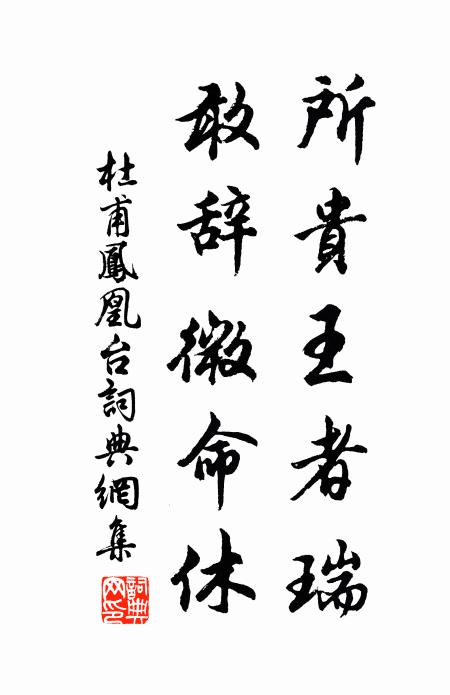 所貴王者瑞
敢辞微命休
杜甫鳳凰台詞典網集
詞典网印